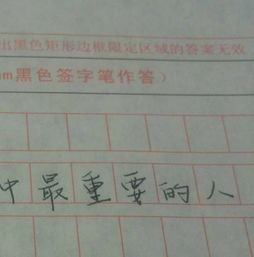 出黑色矩形边框限定区域的答案无效
m黑色签字笔作答）
中最重要的人